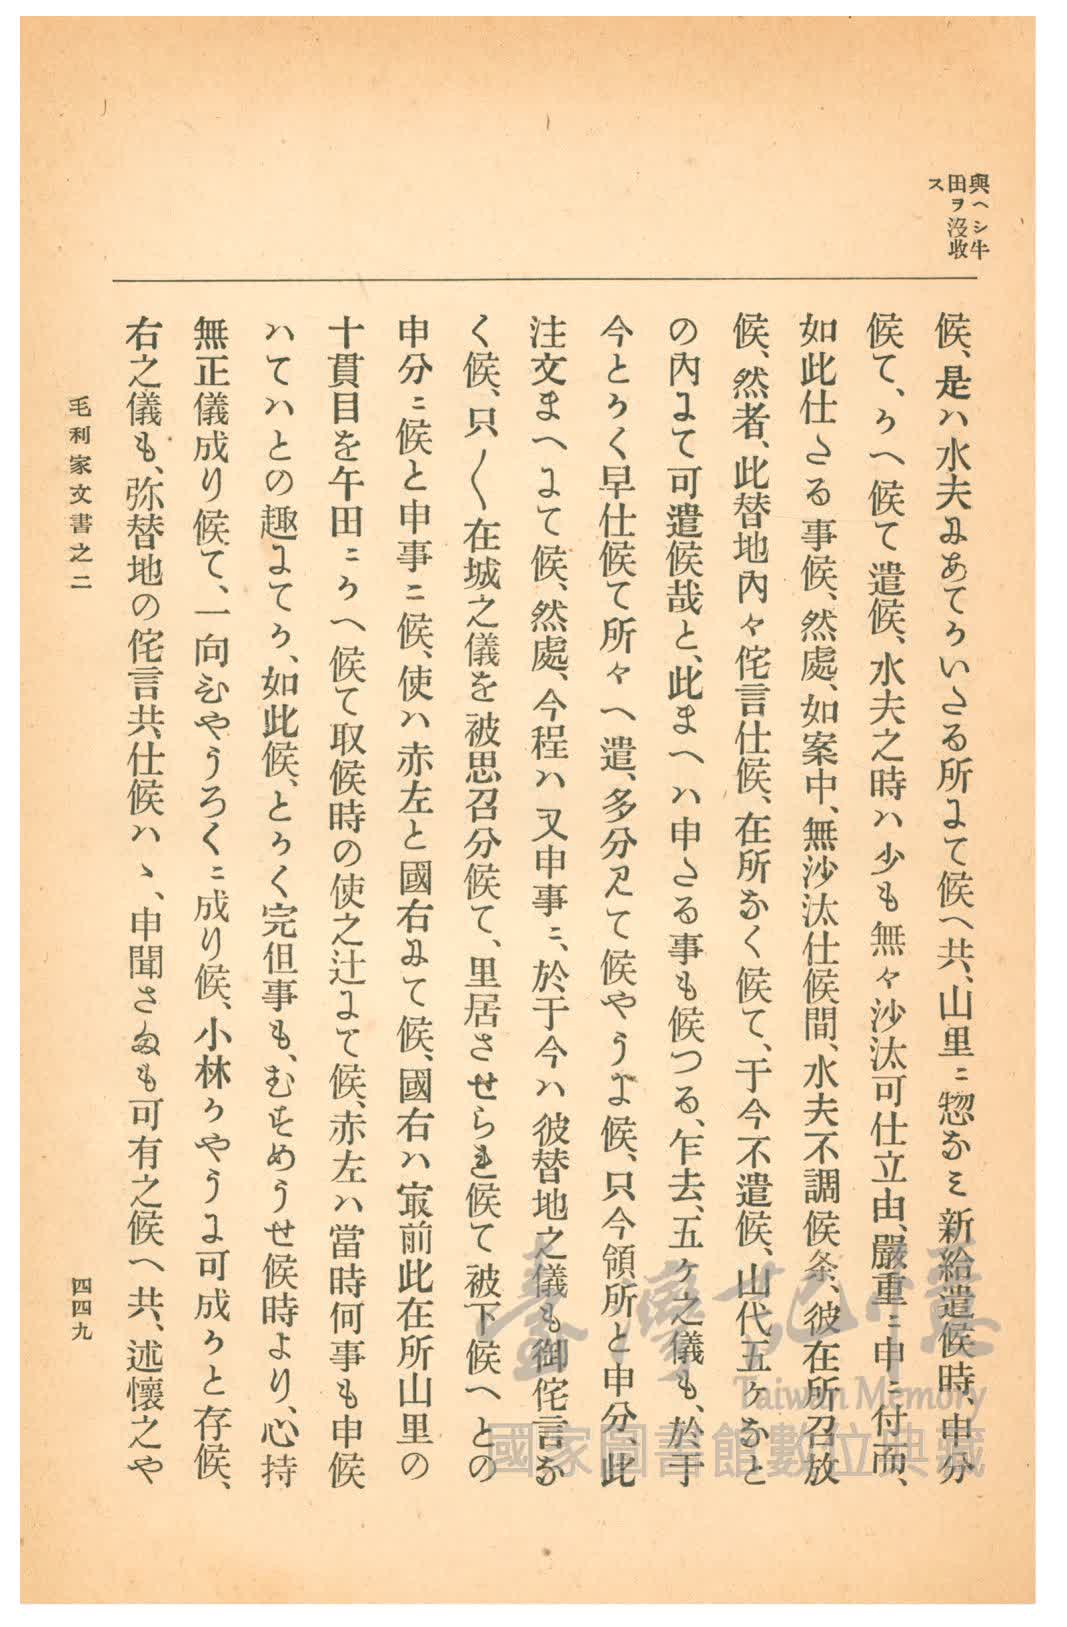 與ヘシ牛
田ヲ沒收
ス
候、是ハ水夫ニあてかいたる所にて候へ共、山里ニ惣なミ新給遣候時、申分
候て、かへ候て遣候、水夫之時ハ少も無々沙汰可仕立由、嚴重ニ申ニ付而、
如此仕たる事候、然處、如案中、無沙汰仕候間、水夫不調候条、彼在所召放
候、然者、此替地內々侘言仕候、在所なく候て、于今不遣候、山代五ケなと
の內にて可遣候哉と、此まへハ申たる事も候つる、乍去、五ケ之儀も、於于
今とかく早仕候て所々へ遣、多分見て候やうよ候、只今領所と申分、此
注文まへにて候、然處、今程ハ又申事ニ、於于今ハ彼替地之儀も御侘言な
く候、只〱在城之儀を被思召分候て、里居させられ候て被下候へとの
申分ニ候と申事ニ候、使ハ赤左と國右ニて候、國右ハ㝡前此在所山里の
十貫目を午田ニかへ候て取候時の使之辻にて候、赤左ハ當時何事も申候
ハてハとの趣にてか、如此候、とかく完但事も、むすめうせ候時より、心持
無正儀成り候て、一向ひやうろくニ成り候、小林かやうに可成かと存候、
右之儀も、弥替地の侘言共仕候ハヽ、申聞さまも可有之候へ共、述懷之や
毛利家文書之二
四四九
臺灣記憶
Taiwan Memory
國家圖書館數位典藏